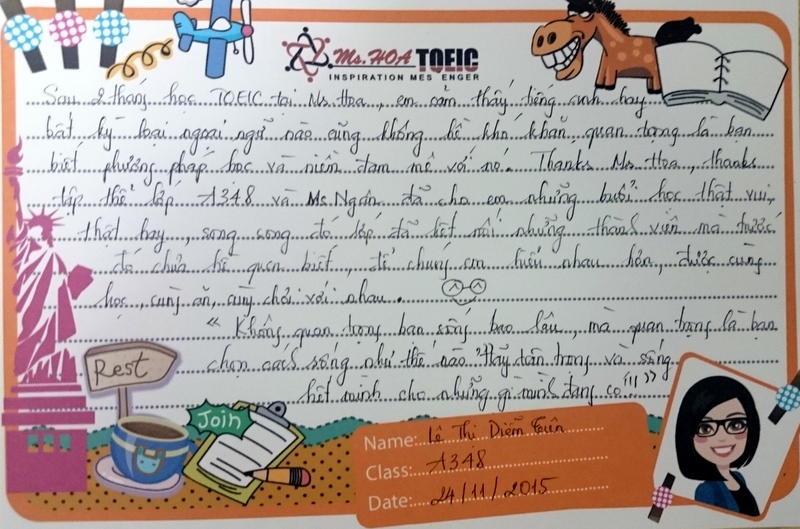 Ms. HOA TOEIC
INSPIRATION MES ENGER
Sau 2 tháng học TOEIC tại Ms Hoa, em cảm thấy tiếng anh hay
bất kỳ loại ngoại ngữ nào cũng không hề khó khăn, quan trọng là bạn
biết phương pháp học và niềm đam mê với nó. Thanks Ms Hoa, thanks
tập thể lớp A348 và Ms Ngân đã cho em những buổi học thật vui,
thật hay, song song đó lớp đã kết nối những thành viên mà trước
đó chưa hề quen biết, để chúng em hiểu nhau hơn, được cùng
học, cùng ăn, cùng chơi với nhau.
"Không quan trọng bạn sống bao lâu, mà quan trọng là bạn
chọn cách sống như thế nào. Hãy trân trọng và sống
hết mình cho những gì mình đang có..."
Rest
Join
Name: Lê Thị Diễm
Class: A348
Date: 24/11/2015